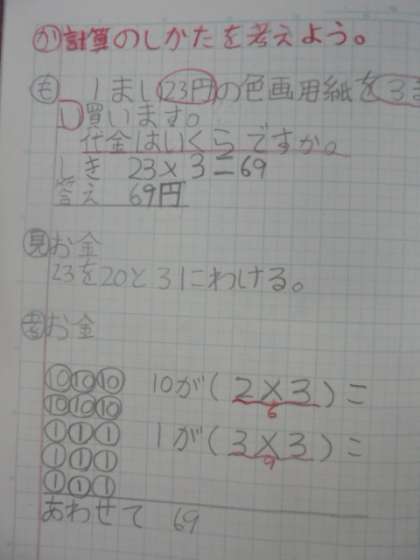 か 計算のしかたを考えよう。
も 1まい23円の色画用紙を3ま
い買います。
代金はいくらですか。
しき 23×3=69
答え 69円
見 お金
23を20と3にわける。
考 お金
10 10 10 10が(2×3)=
6
10 10 10
1 1 1 1が(3×3)=
9
1 1 1
1 1 1
あわせて 69